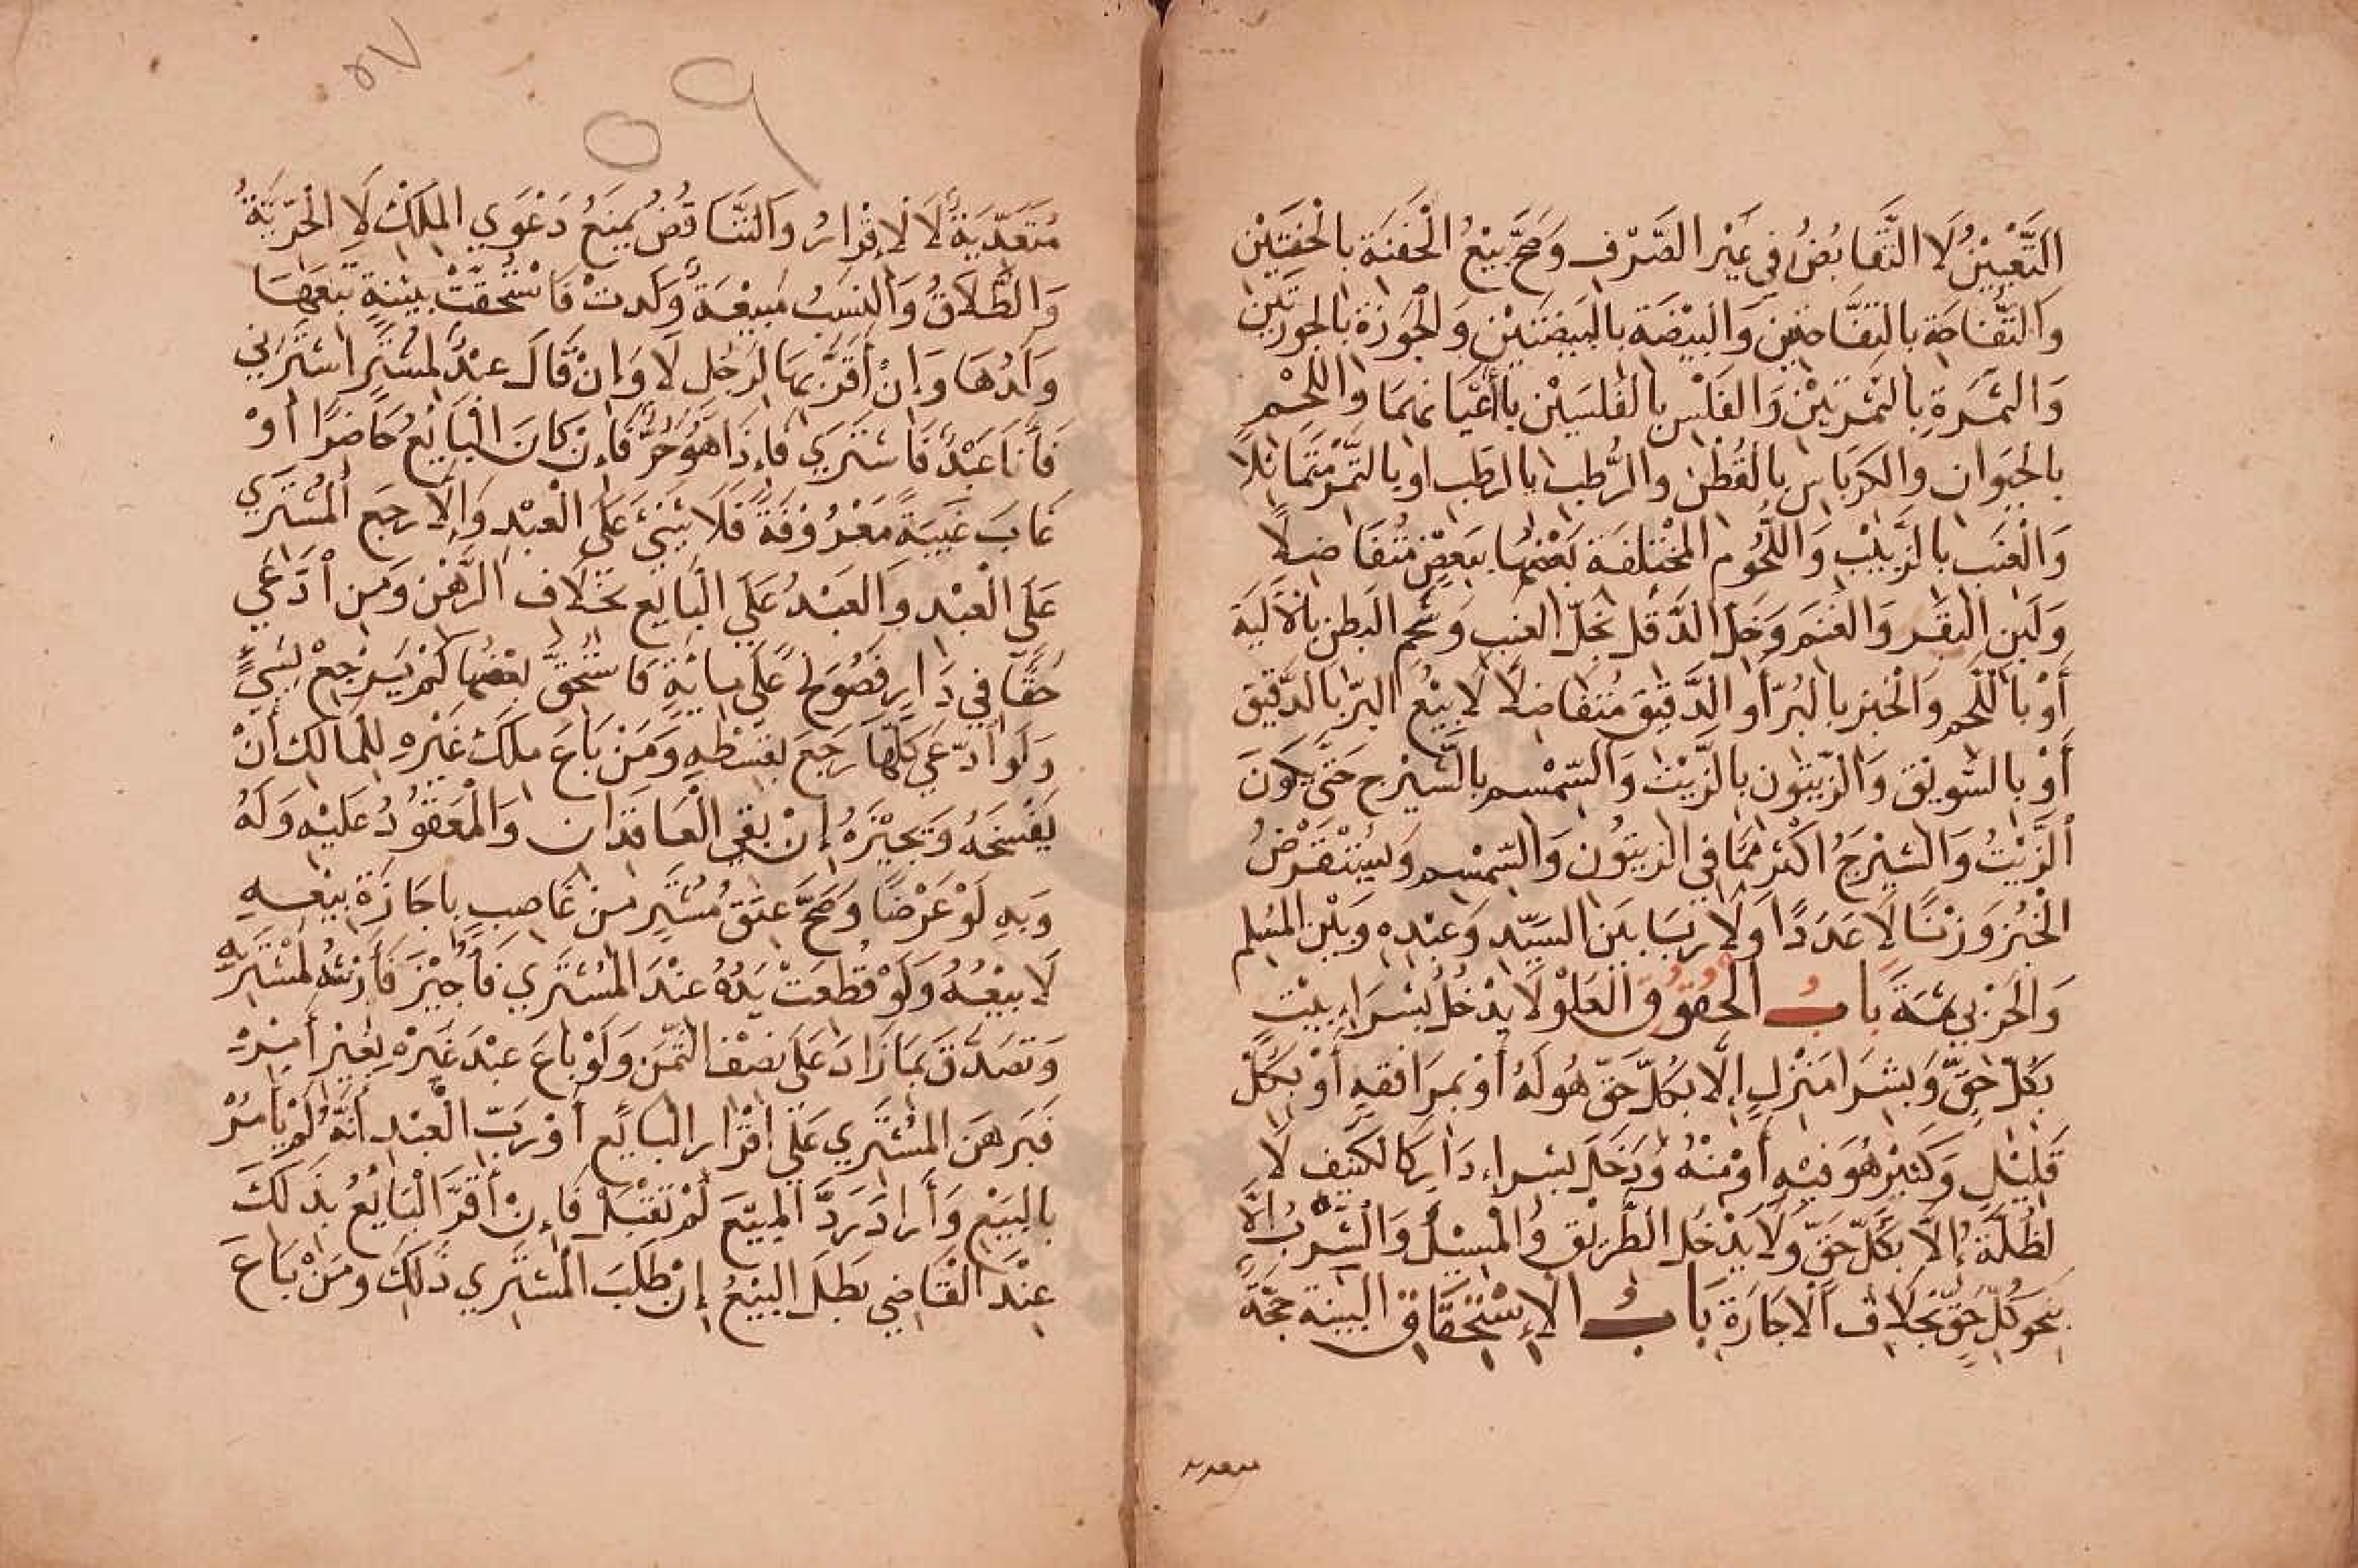 التَّعْيِيْنُ لَا التَّقَابُضُ فِي غَيْرِ الصَّرْفِ وَصَحَّ بَيْعُ الْحَفْنَةِ بِالْحَفْنَتَيْنِ
وَالتُّفَّاحَةِ بِالتُّفَّاحَتَيْنِ وَالْبَيْضَةِ بِالْبَيْضَتَيْنِ وَالْجَوْزَةِ بِالْجَوْزَتَيْنِ
وَالتَّمْرَةِ بِالتَّمْرَتَيْنِ وَالفَلْسِ بِالفَلْسَيْنِ بِأَعْيَانِهِمَا وَاللَّحْمِ
بِالْحَيَوَانِ وَالكَرْبَاسِ بِالقُطْنِ وَالرُّطَبِ بِالرُّطَبِ اَوْ بِالتَّمْرِ مُتَمَاثِلًا
وَالْعِنَبِ بِالزَّبِيْبِ وَاللُّحُومِ الْمُخْتَلِفَةِ بَعْضُهَا بِبَعْضٍ مُتَفَاضِلًا
وَلَبَنِ الْبَقَرِ وَالْغَنَمِ وَخَلِّ الدَّقَلِ بِخَلِّ العِنَبِ وَشَحْمِ الْبَطْنِ بِالْأَلْيَةِ
أَوْ بِاللَّحْمِ وَالْخُبْزِ بِالْبُرِّ أَوِ الدَّقِيْقِ مُتَفَاضِلًا لَا بَيْعُ البُرِّ بِالدَّقِيْقِ
أَوْ بِالسَّوِيْقِ وَالزَّيْتُونِ بِالزَّيْتِ وَالسِّمْسِمِ بِالشَّيْرَجِ حَتَّى يَكُونَ
الزَّيْتُ وَالشَّيْرَجُ اَكْثَرَ مِمَّا فِي الزَّيْتُونِ وَالسِّمْسِمِ وَيُسْتَقْرَضُ
الْخُبْزُ وَزْنًا لَا عَدَدًا وَلَا رِبَا بَيْنَ السَّيِّدِ وَعَبْدِهِ وَبَيْنَ المُسْلِمِ
وَالْحَرْبِيِّ ثَمَّةَ بَابُ الْحُقُوْقِ الْعُلُوُّ لَا يَدْخُلُ بِشِرَاءِ بَيْتٍ
بِكُلِّ حَقٍّ وَبِشِرَا مَنْزِلٍ إِلَّا بِكُلِّ حَقٍّ هُوَ لَهُ أَوْ بِمَرَافِقِهِ أَوْ بِكُلِّ
قَلِيْلٍ وَكَثِيْرٍ هُوَ فِيْهِ أَوْ مِنْهُ وَدَخَلَ بِشِرَاءِ دَارٍ كَالكَنِيْفِ لَا
لظُلَّةُ إِلَّا بِكُلِّ حَقٍّ وَلَا يَدْخُلُ الطَّرِيْقُ وَالْمَسِيْلُ وَالشِّرْبُ إِلَّا
بِنَحْوِ كُلِّ حَقٍّ بِخِلَافِ الْاِجَارَةِ بَابُ الْإِسْتِحْقَاقِ البَيِّنَةُ حُجَّةٌ
مُتَعَدِّيَةٌ لَا الْإِقْرَارُ وَالتَّنَاقُضُ يَمْنَعُ دَعْوَي المِلْكِ لَا الْحُرِّيَّةُ
وَالطَّلَاقُ وَالنَسَبُ مَبِيْعَةٌ وَلَدَتْ فَاسْتُحِقَّتْ بِبَيِّنَةٍ تَبِعَهَا
وَلَدُهَا وَإِنْ أَقَرَّ بِهَا لِرَجُلٍ لَا وَإِنْ قَالَ عَبْدٌ لِمُشْتَرٍ اشْتَرِنِي
فَأَنَا عَبْدٌ فَاشْتَرَي فَإِذَا هُوَ حُرٌّ فَإِنْ كَانَ الْبَايِعُ حَاضِرًا أَوْ
غَابَ غَيْبَةً مَعْرُوفَةً فَلَا شَيْئَ عَلَي الْعَبْدِ وَإِلَّا رَجَعَ الْمُشْتَرِي
عَلَي الْعَبْدِ وَالْعَبْدُ عَلَي الْبَايِعِ بِخِلَافِ الرَّهْنِ وَمَنِ ادَّعَي
حَقًّا فِي دَارٍ فَصُوْلِحَ عَلَي مِايَةٍ فَاسْتُحِقَّ بَعْضُهَا لَمْ يَرْجِعْ بِشَيٍْ
وَلَوِ ادَّعَي كُلَّهَا رَجَعَ بِقِسْطِهِ وَمَنْ بَاعَ مِلْكَ غَيْرِهِ لِلْمَالِكِ أَنْ
يَفْسَخَهُ وَيُجِيْزَهُ إِنْ بَقِيَ الْعَاقِدَانِ وَالْمَعْقُوْدُ عَلَيْهِ وَلَهُ
وَبِهِ لَوْ عَرْضًا وَصَحَّ عِتْقُ مُشْتَرٍ مِنْ غَاصِبٍ بِاِجَازَةِ بَيْعِهِ
لَا بَيْعُهُ وَلَوْ قُطِعَتْ يَدُهُ عِنْدَ الْمُشْتَرِي فَأُجِيْزَ فَأَرْشُهُ لِمُشْتَرِيْهِ
وَتَصَدَّقَ بِمَا زَادَ عَلَى نِصْفِ الثَّمَنِ وَلَوْ بَاعَ عَبْدَ غَيْرِهِ بِغَيْرِ أَمْرِهِ
فَبَرْهَنَ الْمُشْتَرِي عَلَي إِقْرَارِ الْبَايِعِ أَوْ رَبِّ الْعَبْدِ أَنَّهُ لَمْ يَأْمُرْ
بِالْبَيْعِ وَأَرَادَ رَدَّ الْمَبِيْعِ لَمْ تُقْبَلْ فَإِنْ أَقَرَّ الْبَايِعُ بِذَلِكَ
عِنْدَ الْقَاضِي بَطَلَ الْبَيْعُ إِنْ طَلَبَ الْمُشْتَرِي ذَلِكَ وَمَنْ بَاعَ